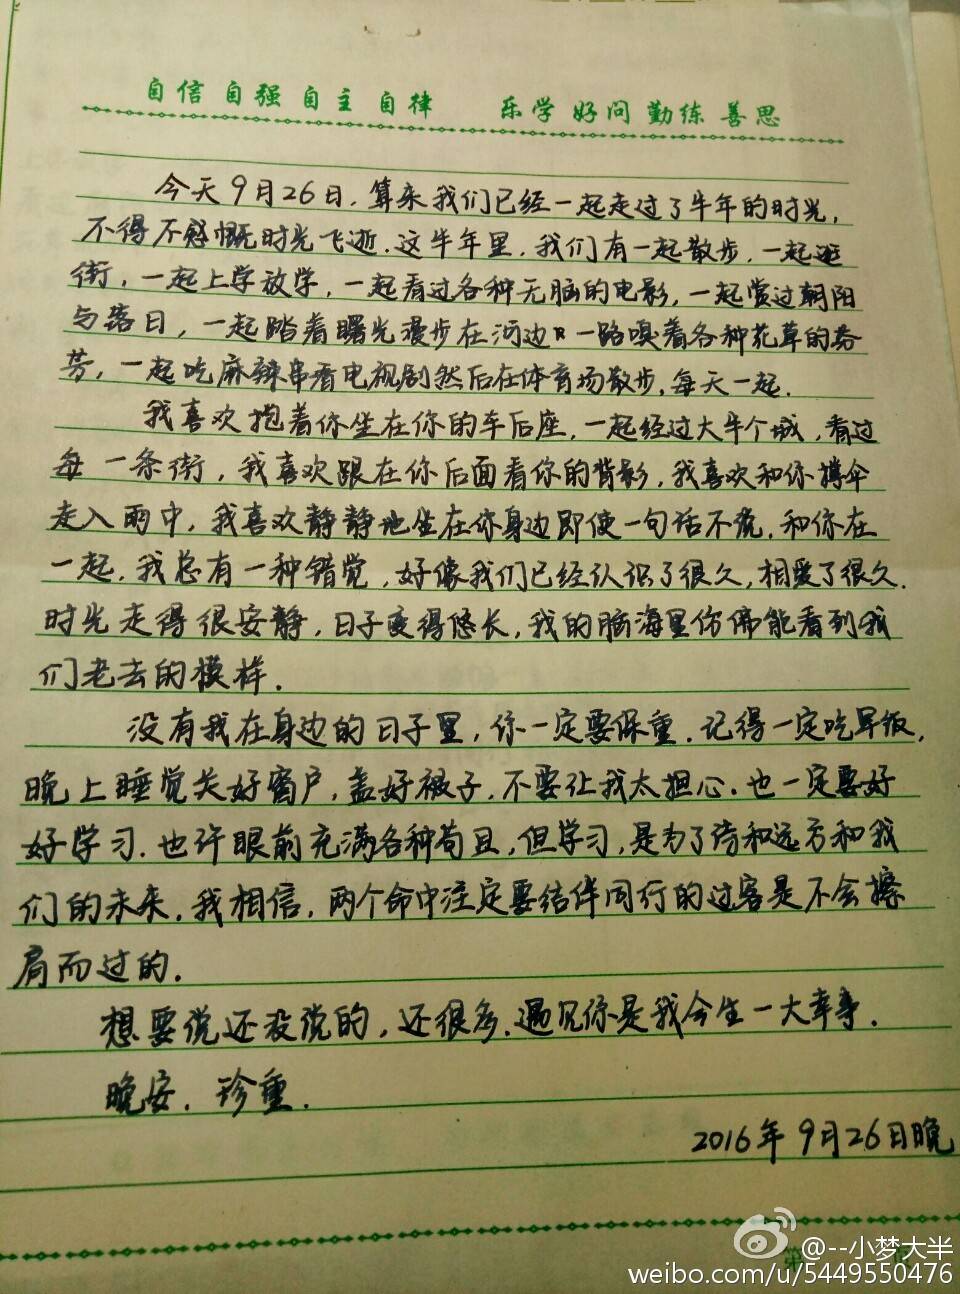 自信 自强 自主 自律 乐学 好问 勤练 善思
今天9月26日,算来我们已经一起走过了半年的时光,
不得不感慨时光飞逝.这半年里,我们有一起散步,一起逛
街,一起上学放学,一起看过各种无脑的电影,一起赏过朝阳
与落日,一起踏着曙光漫步在河边 一路嗅着各种花草的芬
芳,一起吃麻辣串看电视剧然后在体育场散步,每天一起.
我喜欢抱着你坐在你的车后座,一起经过大半个城,看过
每一条街,我喜欢跟在你后面看你的背影,我喜欢和你撑伞
走入雨中,我喜欢静静地坐在你身边即使一句话不说,和你在
一起,我总有一种错觉,好像我们已经认识了很久,相爱了很久.
时光走得很安静,日子变得悠长,我的脑海里仿佛能看到我
们老去的模样.
没有我在身边的日子里,你一定要保重.记得一定吃早饭,
晚上睡觉关好窗户,盖好被子,不要让我太担心.也一定要好
好学习.也许眼前充满各种苟且,但学习,是为了诗和远方和我
们的未来,我相信,两个命中注定要结伴同行的过客是不会擦
肩而过的.
想要说还没说的,还很多.遇见你是我今生一大幸事.
晚安.珍重.
2016年9月26日晚
第
@--小梦大半
weibo.com/u/5449550476